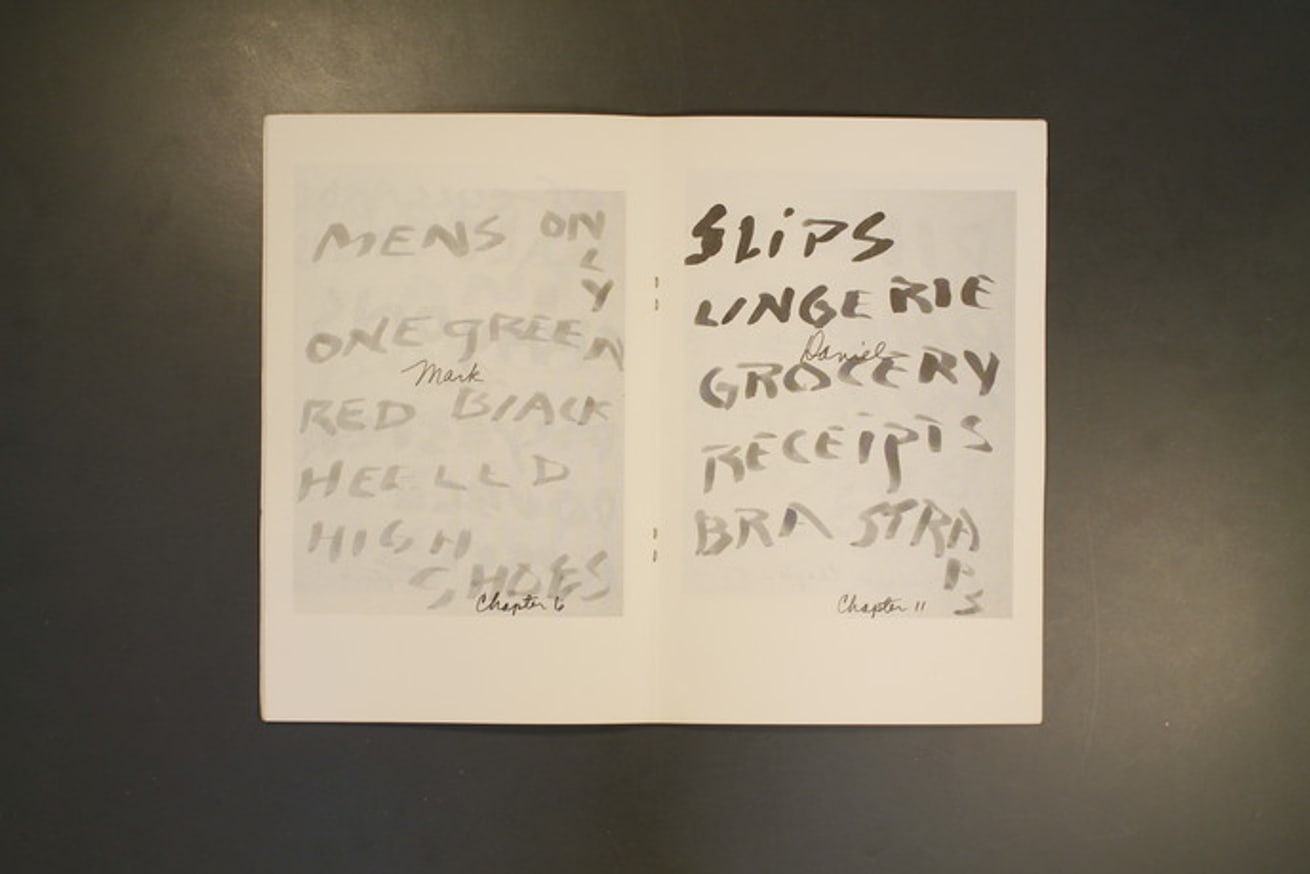 MENS ON
L
Y
ONE GREEN
Mark
RED BLACK
HEELLD
HIGH
SHOES
Chapter 6
SLiPS
LINGERIE
Daniel
GROCERY
RECEiPTS
BRA STRA
P
S
Chapter 11